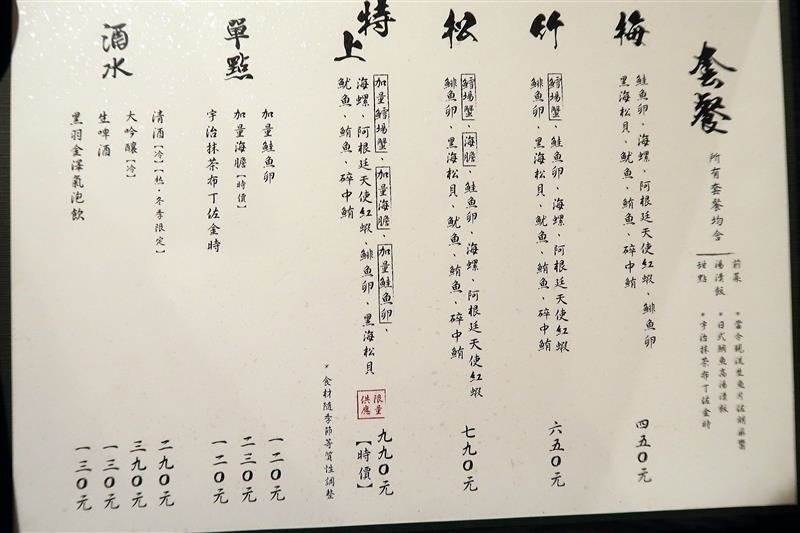 套餐
所有套餐均含
前菜 *當令現流生魚片佐胡麻醬
湯漬飯 *日式鯛魚高湯漬飯
甜點 *宇治抹茶布丁佐金時
梅
鮭魚卵、海螺、阿根廷天使紅蝦、鯡魚卵
黑海松貝、魷魚、鮪魚、碎中鮪
四五〇元
竹
鱈場蟹、鮭魚卵、海螺、阿根廷天使紅蝦
鯡魚卵、黑海松貝、魷魚、鮪魚、碎中鮪
六五〇元
松
鱈場蟹、海膽、鮭魚卵、海螺、阿根廷天使紅蝦
鯡魚卵、黑海松貝、魷魚、鮪魚、碎中鮪
七九〇元
特上
加量鱈場蟹、加量海膽、加量鮭魚卵、
海螺、阿根廷天使紅蝦、鯡魚卵、黑海松貝
魷魚、鮪魚、碎中鮪
限量
供應
九九〇元
【時價】
*食材隨季節等質性調整
單點
加量鮭魚卵
一二〇元
加量海膽【時價】
二三〇元
宇治抹茶布丁佐金時
一二〇元
酒水
清酒【冷】【熱·冬季限定】
二九〇元
大吟釀【冷】
三九〇元
生啤酒
一三〇元
黑羽金澤氣泡飲
一三〇元